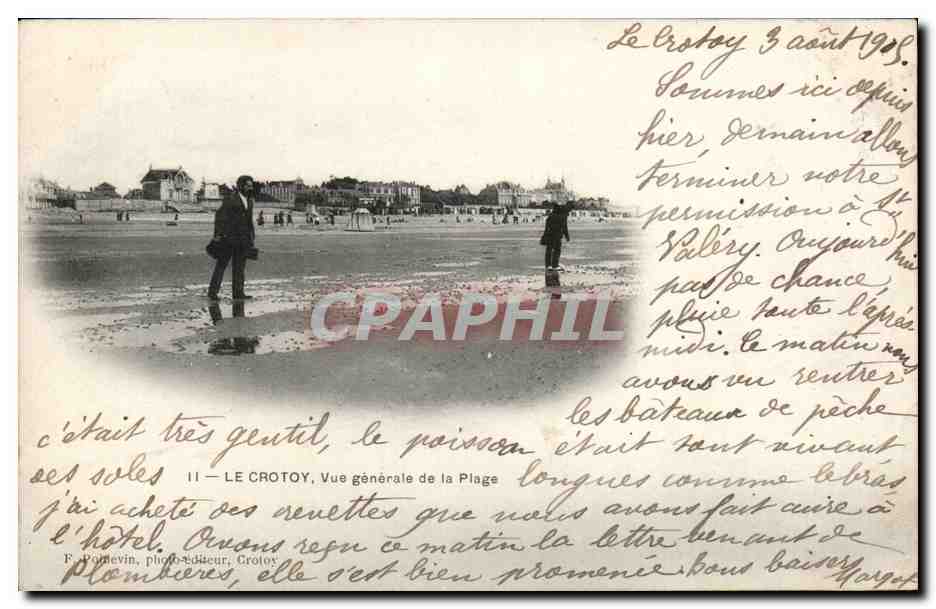 Le Crotoy 3 août 1905.
Sommes ici depuis
hier, demain allons
terminer notre
permission à St
Valéry. Oujourd'hui
pas de chance,
pluie toute l'après
midi. Ce matin nous
avons vu rentrer
les bateaux de pêche
c'était très gentil, le poisson était tout vivant
des soles longues comme le bras
11 — LE CROTOY, Vue générale de la Plage
j'ai acheté des crevettes que nous avons fait cuire à
l'hôtel. Avons reçu ce matin la lettre venant de
F. Poidevin, photo-éditeur, Crotoy
Plombières, elle s'est bien promenée. Bons baisers
Margot
CPAPHIL